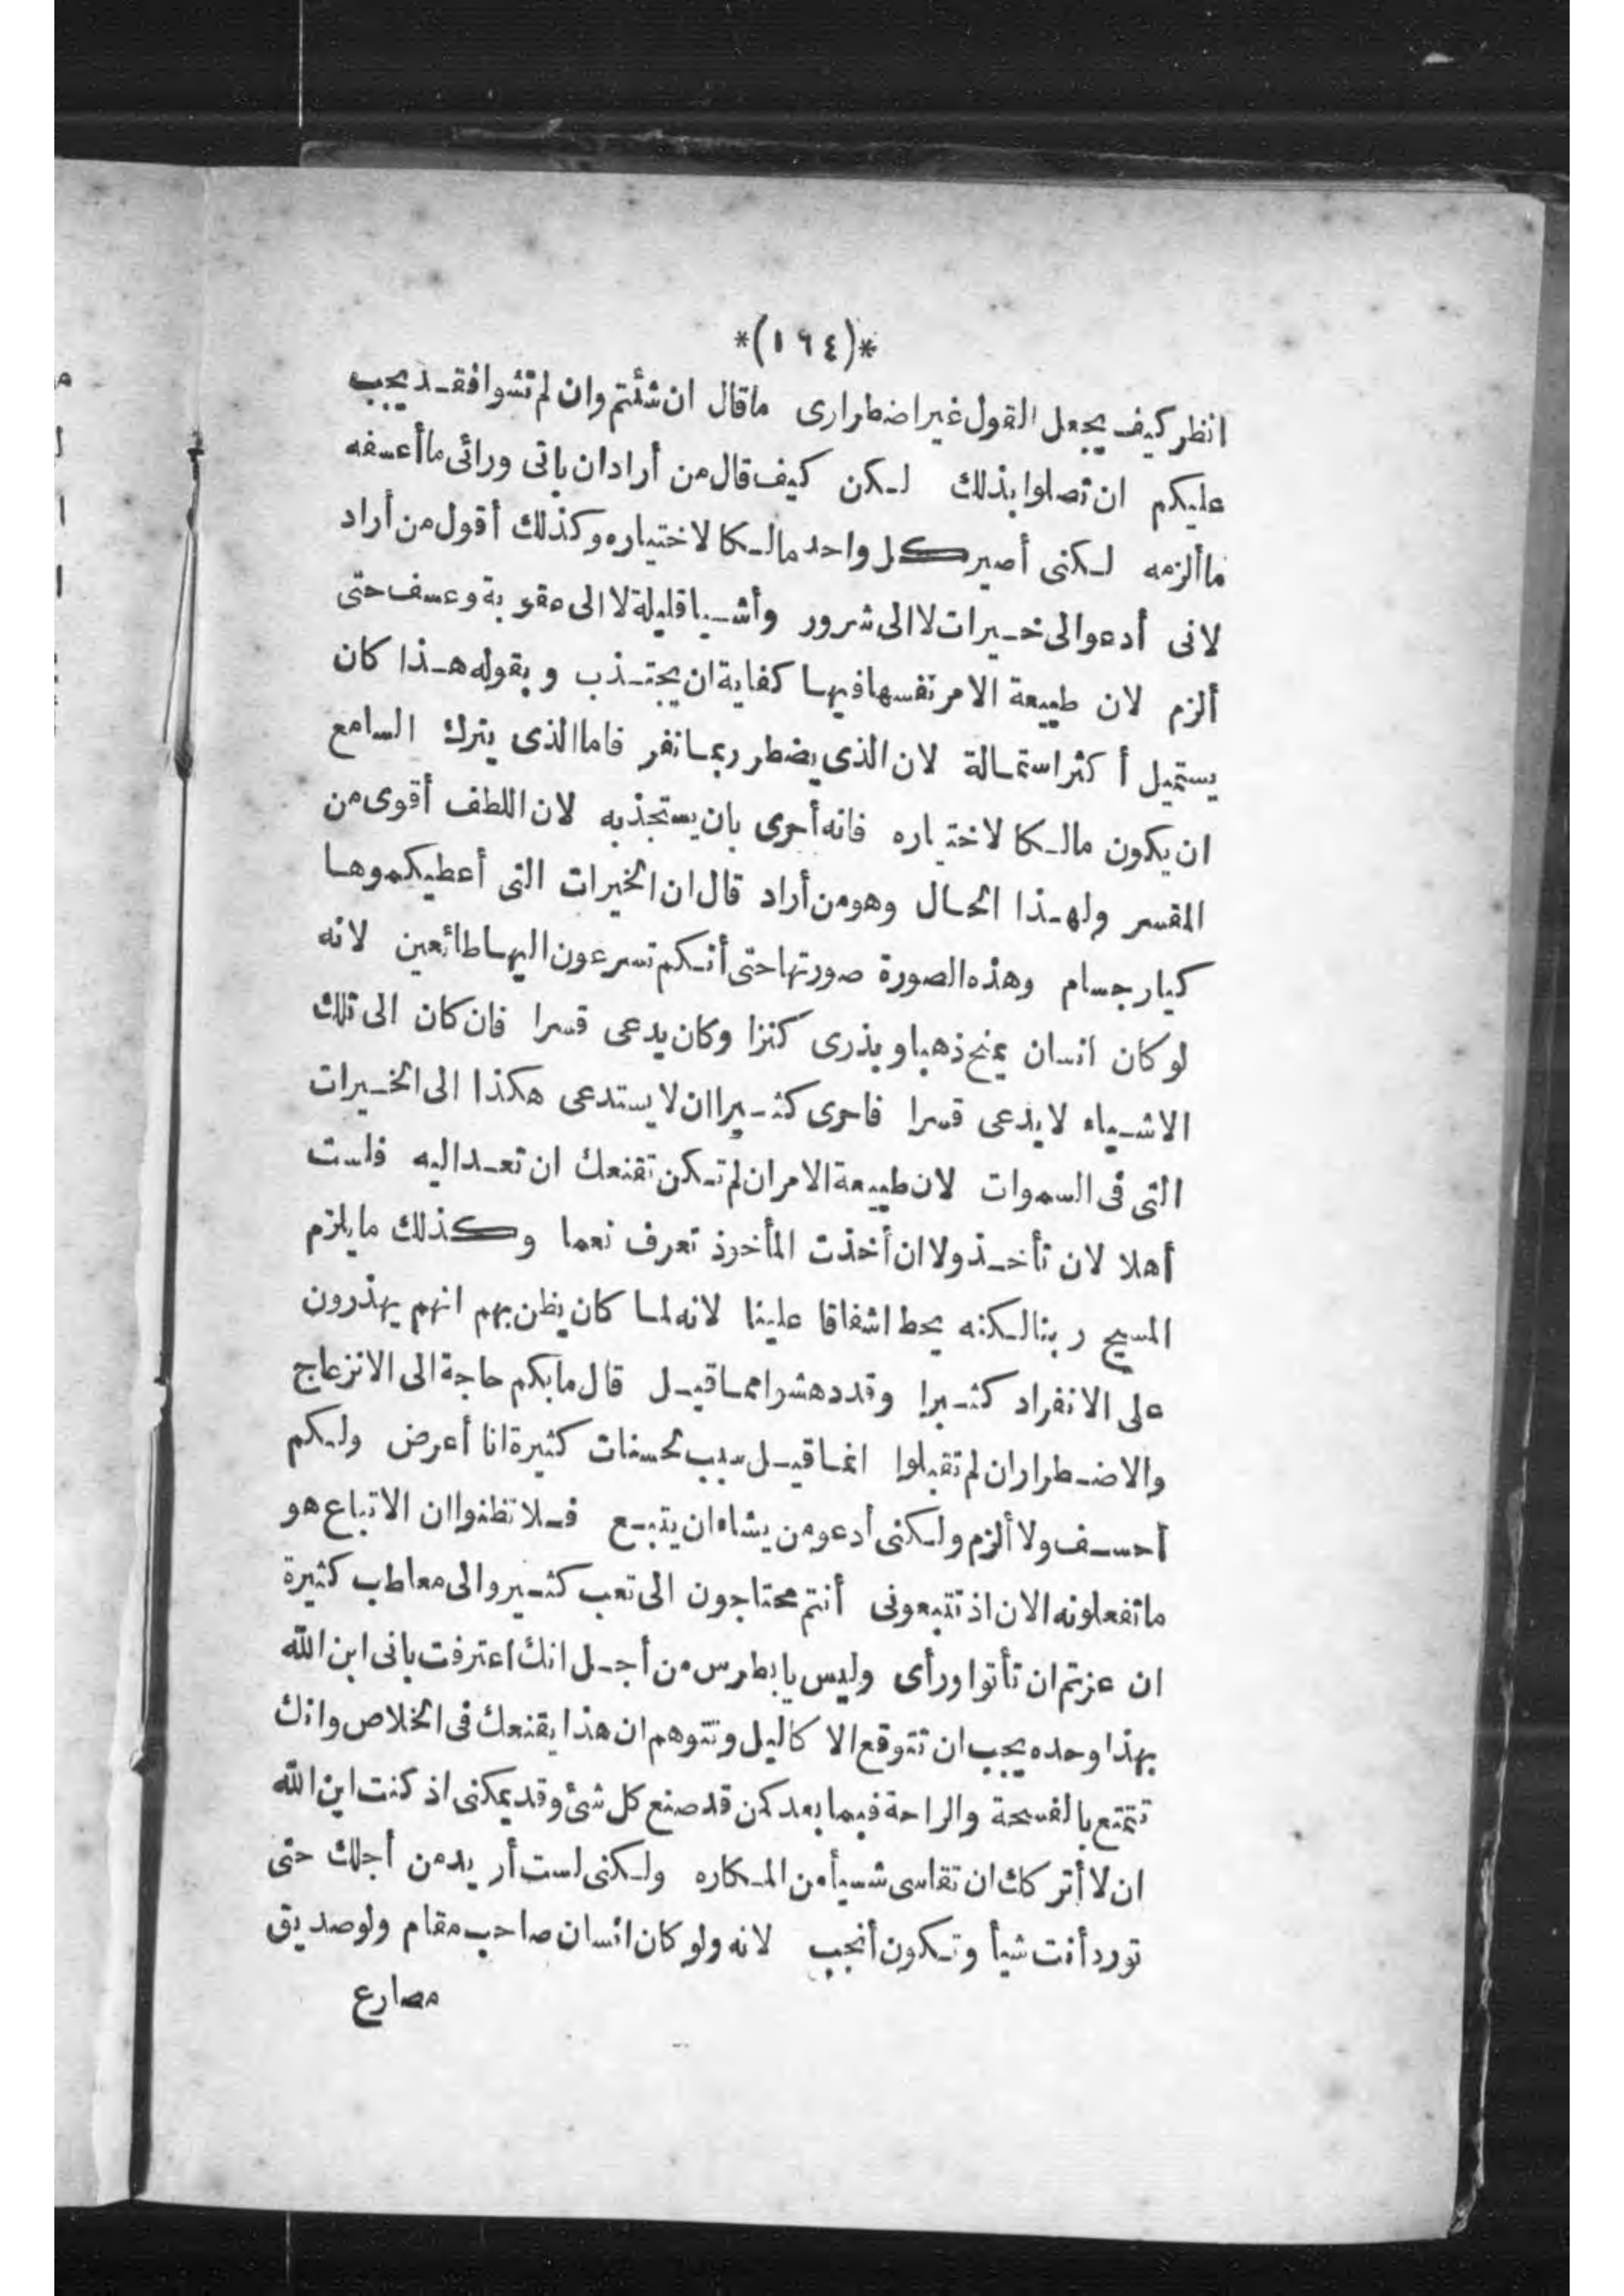 *(١٩٤)*
انظر كيف يجعل القول غير اضطرارى ماقال ان شئتم وان لم تشوا فقد يجب
عليكم ان تصلوا بذلك لكن كيف قال من أراد ان ياتى ورائى ماأعسفه
ماألزمه لكنى أصير كل واحد مالكا لاختياره وكذلك أقول من أراد
لانى أدعو الى خيرات لا الى شرور وأشيا قليلة لا الى عقوبة وعسف حتى
ألزم لان طبيعة الامر نفسها فيها كفاية ان يجتذب وبقوله هذا كان
يستميل أكثر استمالة لان الذى يضطر ربما نفر فاما الذى يترك السامع
ان يكون مالكا لاختياره فانه أحرى بان يستجذبه لان اللطف أقوى من
القسر ولهذا الحال وهو من أراد قال ان الخيرات التى أعطيكموها
كبار جسام وهذه الصورة صورتها حتى أنكم تسرعون اليها طائعين لانه
لو كان انسان يمنح ذهبا ويذرى كنزا وكان يدعى قسرا فان كان الى تلك
الاشياء لايدعى قسرا فاحرى كثيرا ان لا يستدعى هكذا الى الخيرات
التى فى السموات لان طبيعة الامر ان لم تكن تقنعك ان تعد اليه فلست
أهلا لان تأخذ ولا ان أخذت المأخوذ تعرف نعما وكذلك مايلزم
المسيح ربنا لكنه يحط اشفاقا علينا لانه لما كان يظن بهم انهم يهذرون
على الانفراد كثيرا وقد دهشوا مما قيل قال مابكم حاجة الى الانزعاج
والاضطرار ان لم تقبلوا انما قيل سبب لحسنات كثيرة انا أعرض ولكم
أحسف ولا ألزم ولكنى أدعو من يشاء ان يتبع فلا تظنوا ان الاتباع هو
ماتفعلونه الان اذ تتبعونى أنتم محتاجون الى تعب كثير والى معاطب كثيرة
ان عزتم ان تأتوا ورأى وليس يابطرس من أجل انك اعترفت بانى ابن الله
بهذا وحده يجب ان تتوقع الاكاليل وتتوهم ان هذا يقنعك فى الخلاص وانك
تتمتع بالفسحة والراحة فيما بعد كمن قد صنع كل شئ وقد يمكنى اذ كنت ابن الله
ان لا أتركك ان تقاسى شسيأ من المكاره ولكنى لست أريد من أجلك حتى
تورد أنت شيأ وتكون أنجب لانه ولو كان انسان صاحب مقام ولو صديق
مصارع